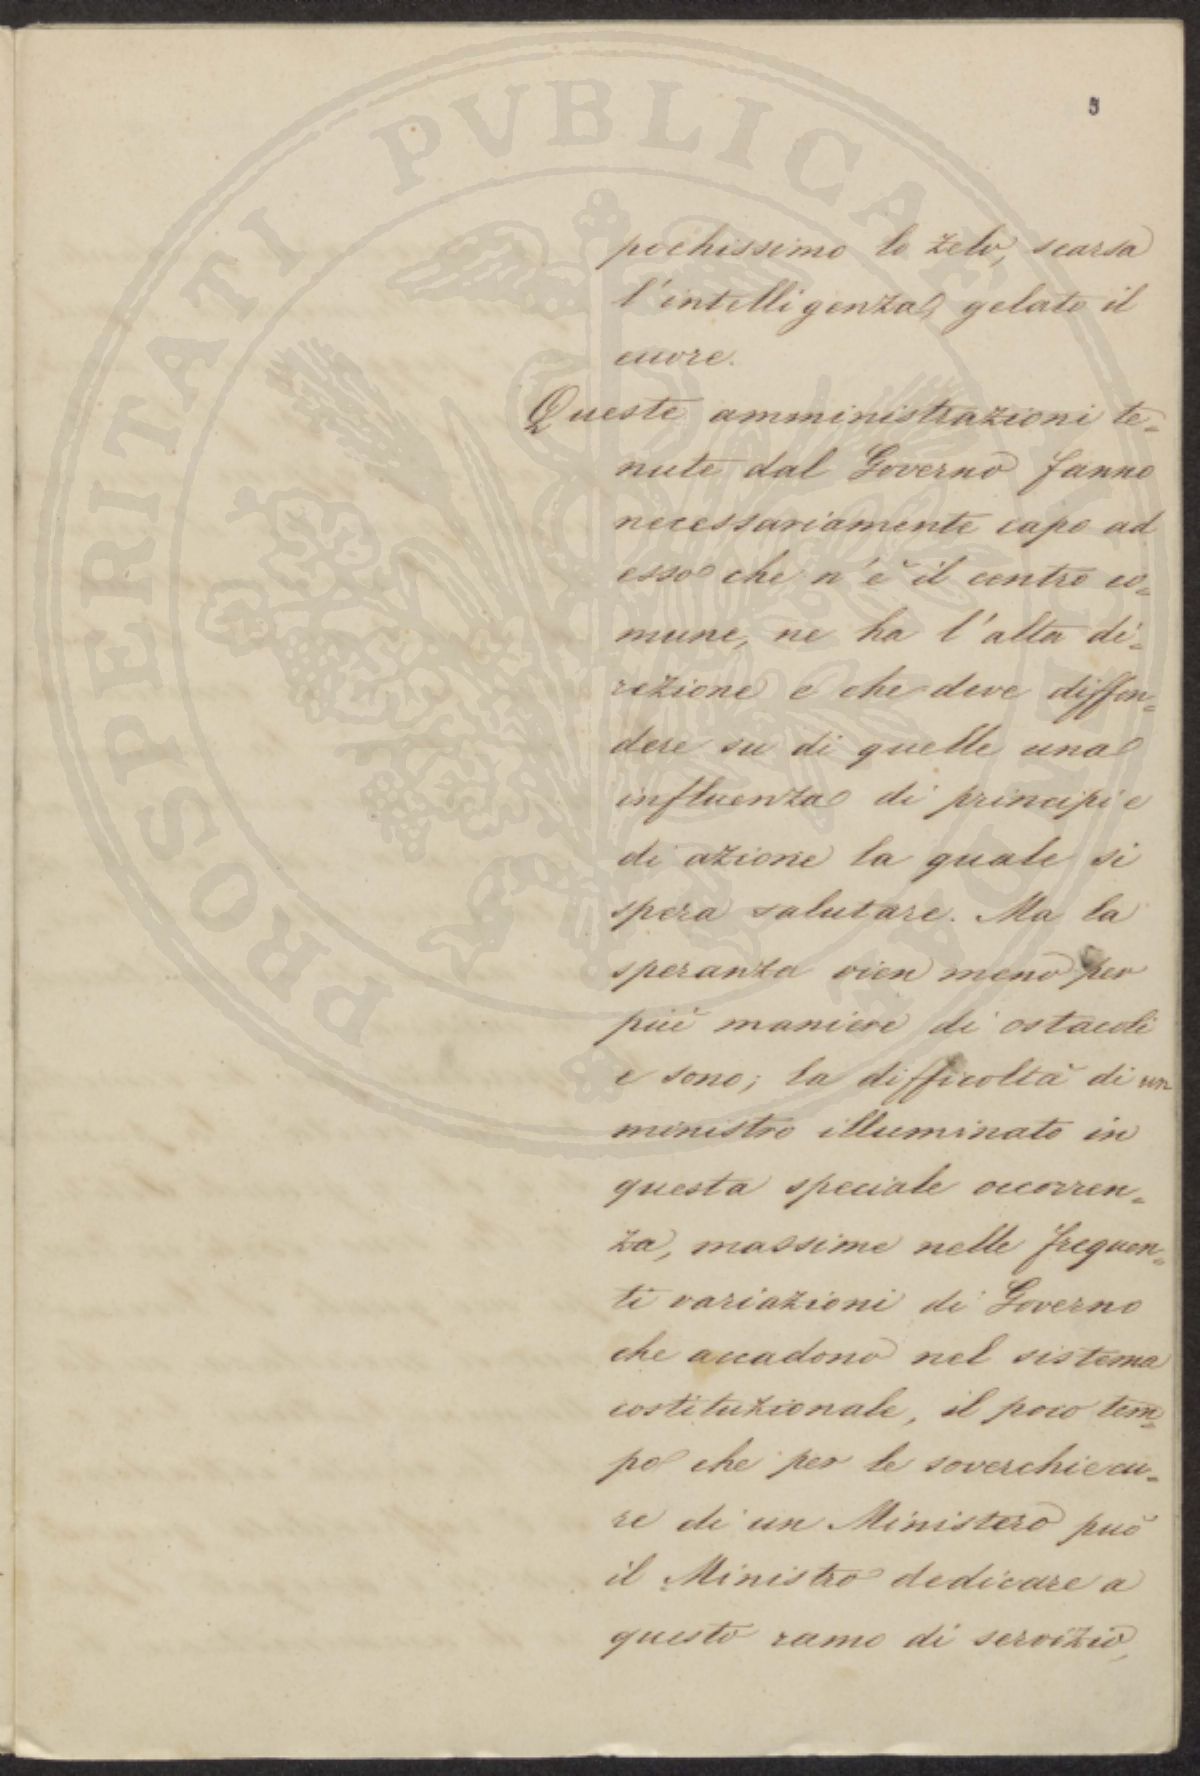 PROSPERITATI PVBLICAE AVGENDAE
5
pochissimo lo zelo, scarsa
l'intelligenza, gelato il
cuore.
Queste amministrazioni te=
nute dal Governo fanno
necessariamente capo ad
esso che n'è il centro co=
mune, ne ha l'alta di=
rezione e che deve diffon=
dere su di quelle una
influenza di principi e
di azione la quale si
spera salutare. Ma la
speranza vien meno per
più maniere di ostacoli
e sono; la difficoltà di un
ministro illuminato in
questa speciale occorren=
za, massime nelle frequen=
ti variazioni di Governo
che accadono nel sistema
costituzionale, il poco tem=
po che per le soverchie cu=
re di un Ministero può
il Ministro dedicare a
questo ramo di servizio,